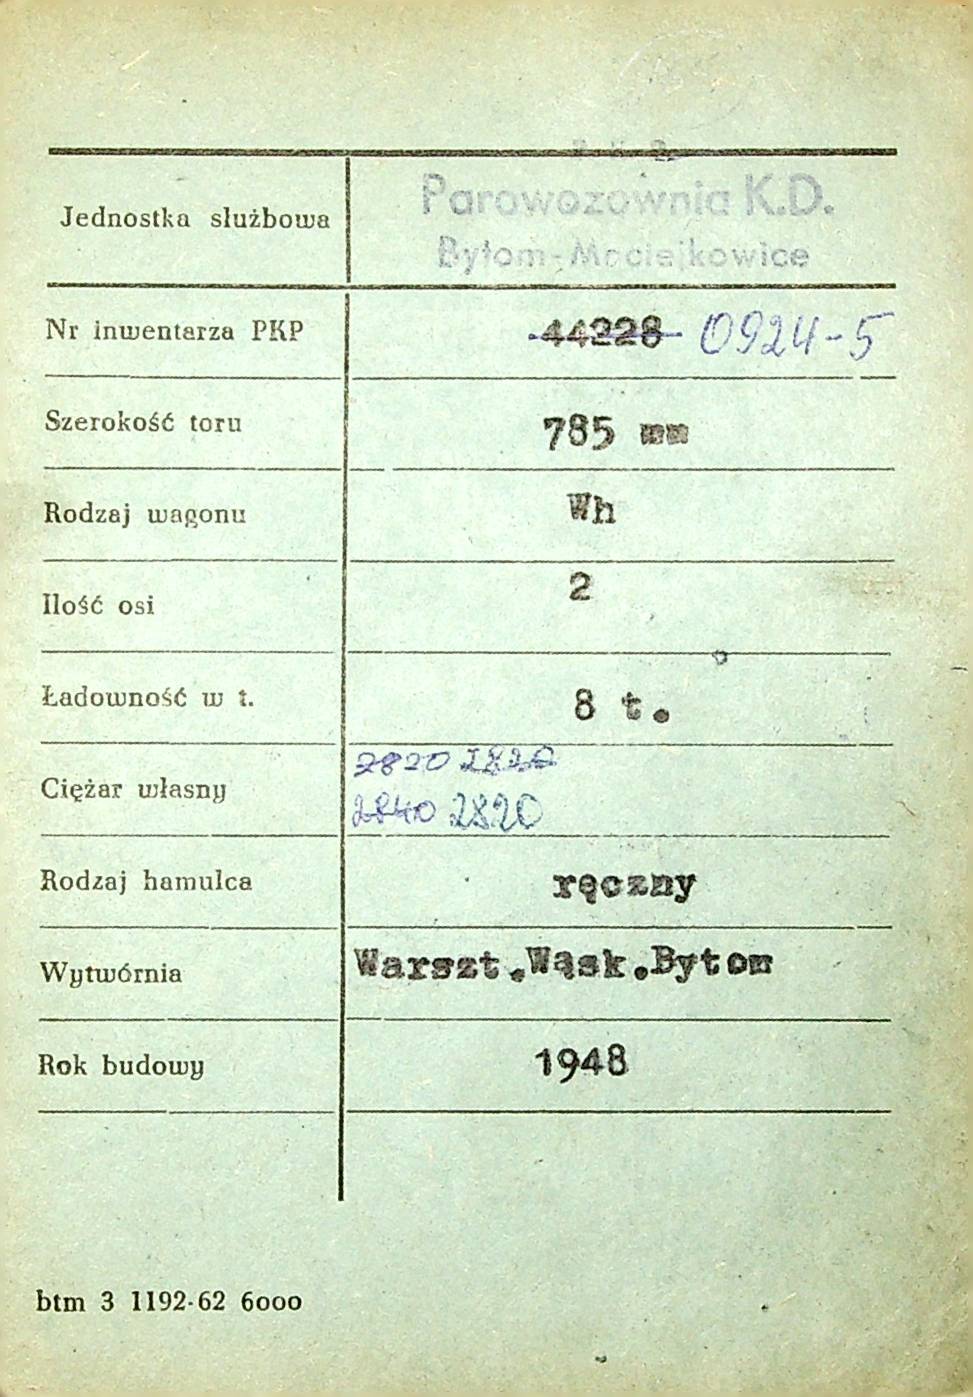 P. K. P.
Parowozownia K.D.
Jednostka służbowa
Bytom-Maciejkowice
Nr inwentarza PKP 44228 0924-5
Szerokość toru 785 mm
Rodzaj wagonu Wh
Ilość osi 2
Ładowność w t. 8 t.
2820 2820
Ciężar własny
2840 2820
Rodzaj hamulca ręczny
Wytwórnia Warszt.Wąsk.Bytom
Rok budowy 1948
btm 3 1192-62 6000